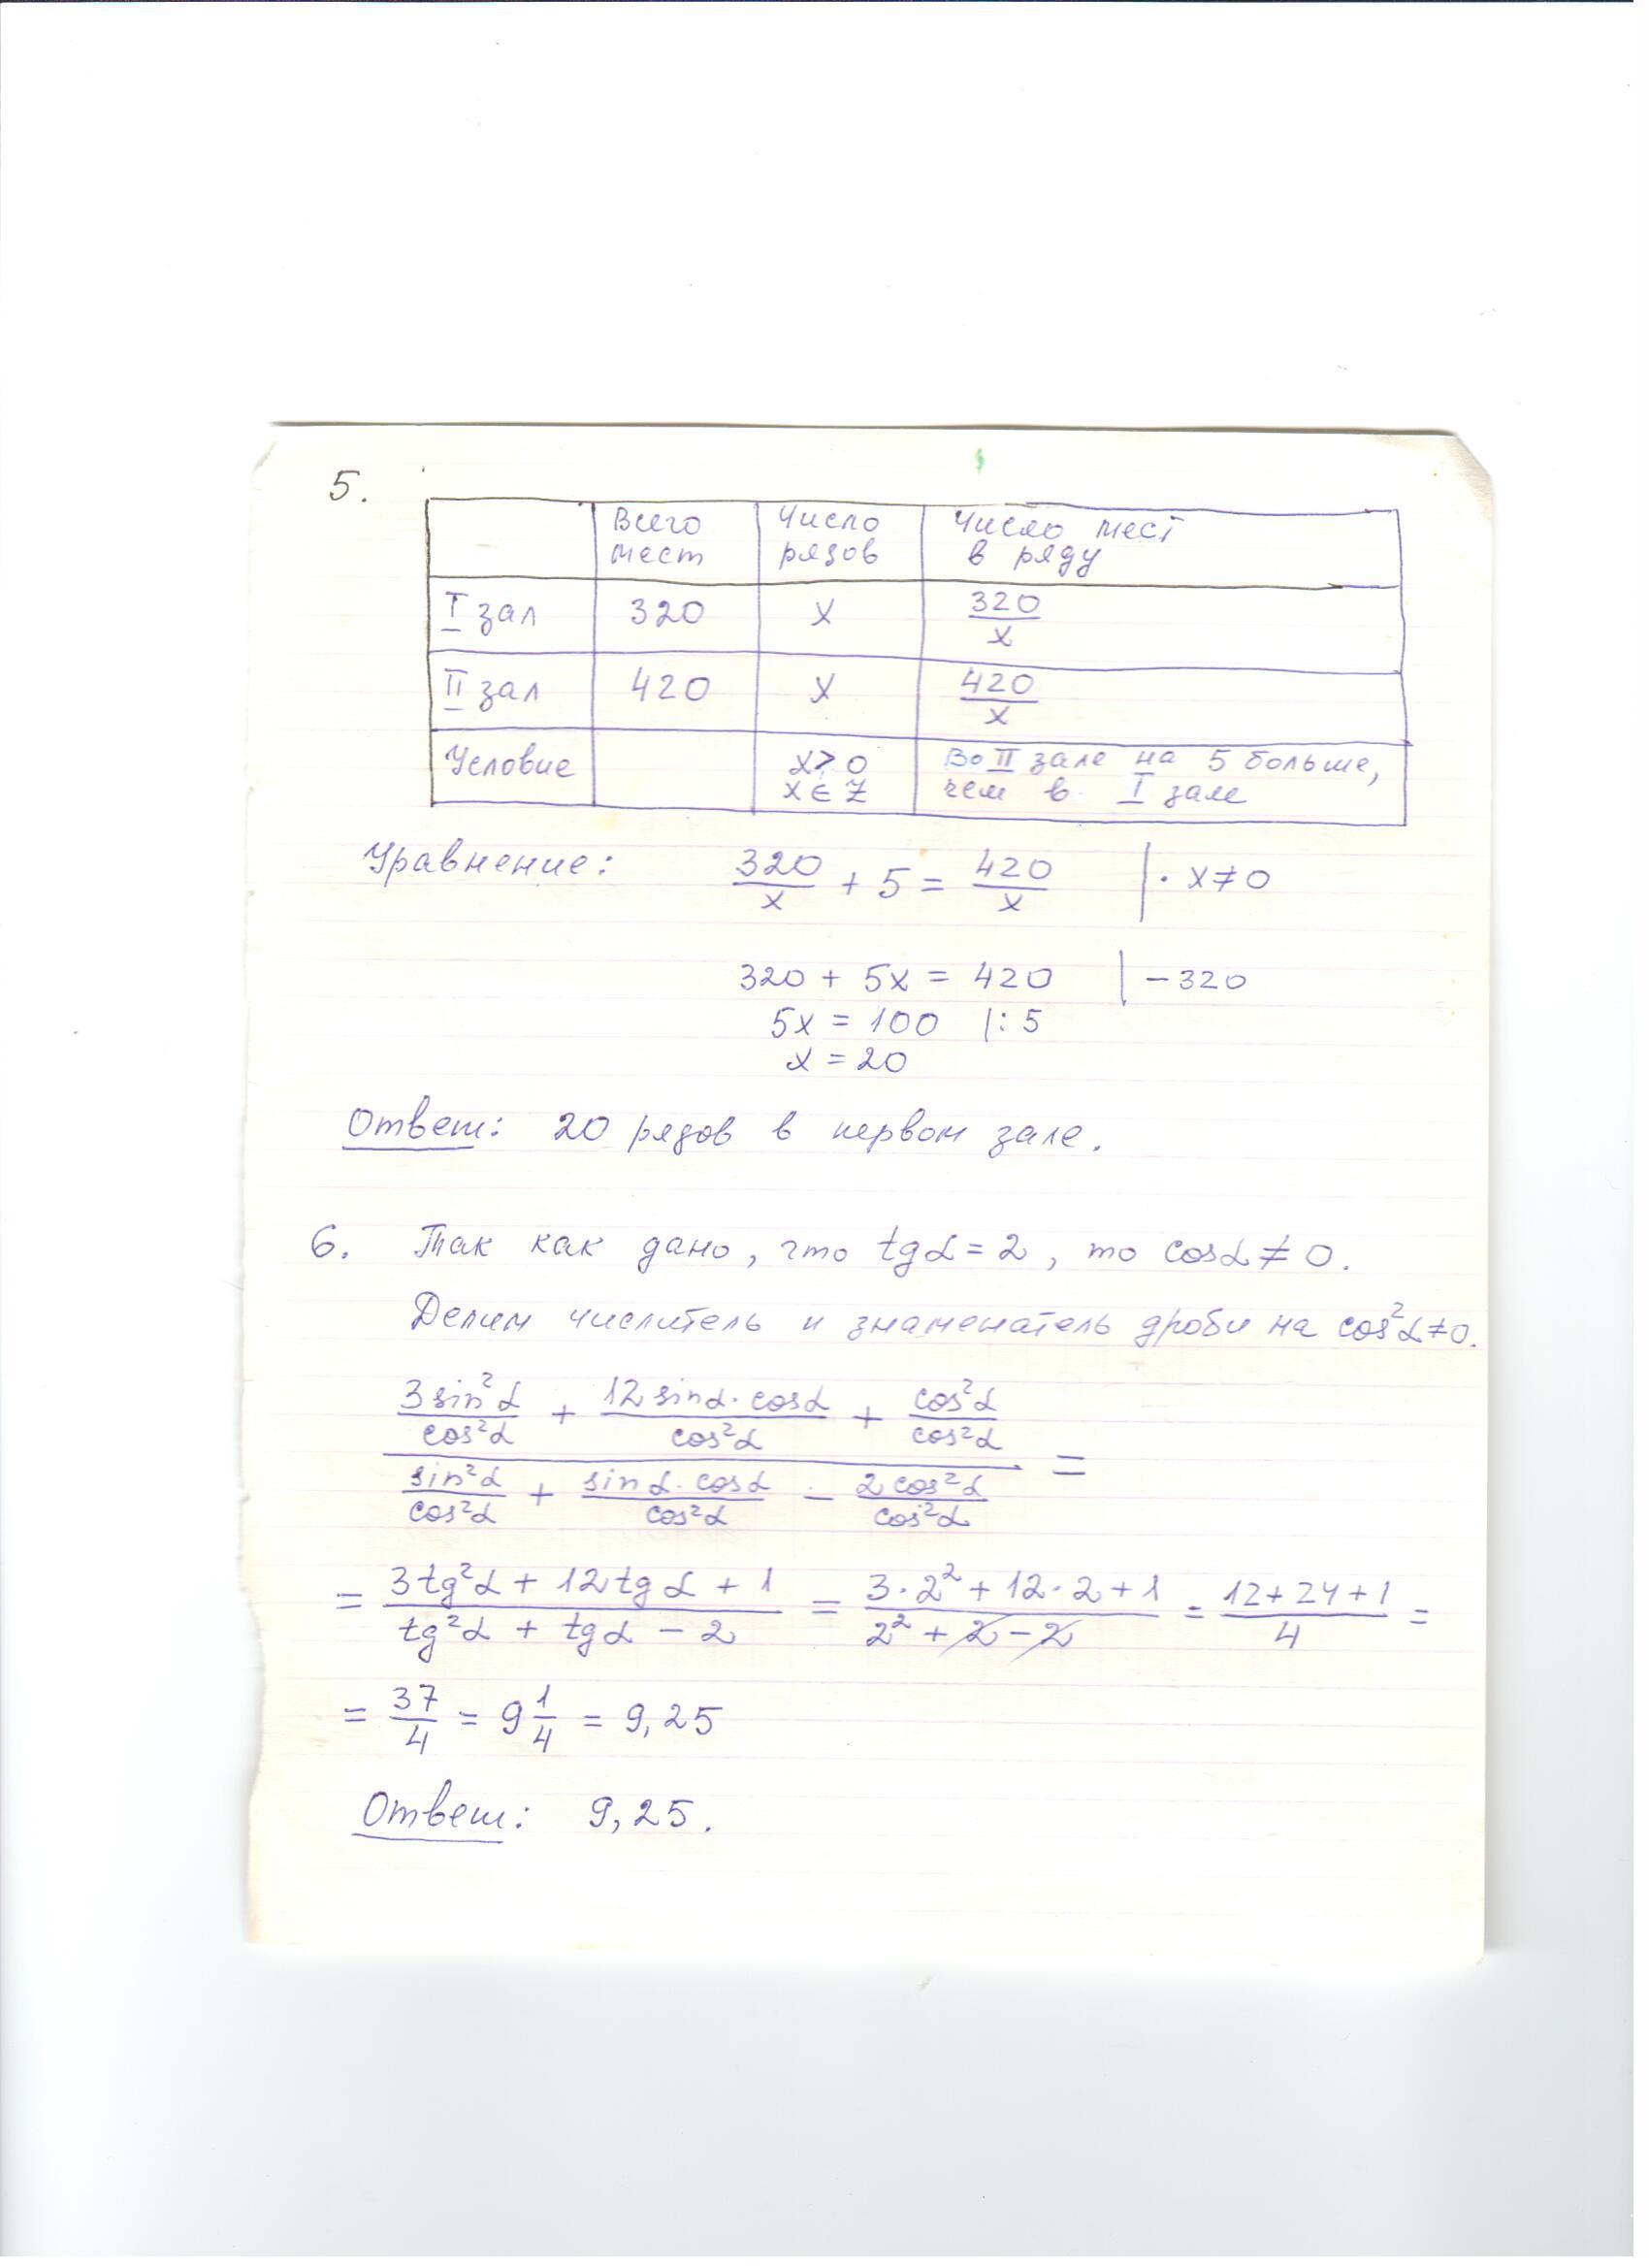 5.
Всего мест | Число рядов | Число мест в ряду
I зал | 320 | x | 320/x
II зал | 420 | x | 420/x
Условие | | x > 0 x ∈ Z | Во II зале на 5 больше, чем в I зале
Уравнение: 320/x + 5 = 420/x | · x ≠ 0
320 + 5x = 420 | − 320
5x = 100 |: 5
x = 20
Ответ: 20 рядов в первом зале.
6. Так как дано, что tgα = 2, то cosα ≠ 0.
Делим числитель и знаменатель дроби на cos²α ≠ 0.
(3sin²α/cos²α + 12sinα·cosα/cos²α + cos²α/cos²α) / (sin²α/cos²α + sinα·cosα/cos²α − 2cos²α/cos²α) =
= (3tg²α + 12tgα + 1)/(tg²α + tgα − 2) = (3·2² + 12·2 + 1)/(2² + 2 − 2) = (12 + 24 + 1)/4 =
= 37/4 = 9 1/4 = 9,25
Ответ: 9,25.